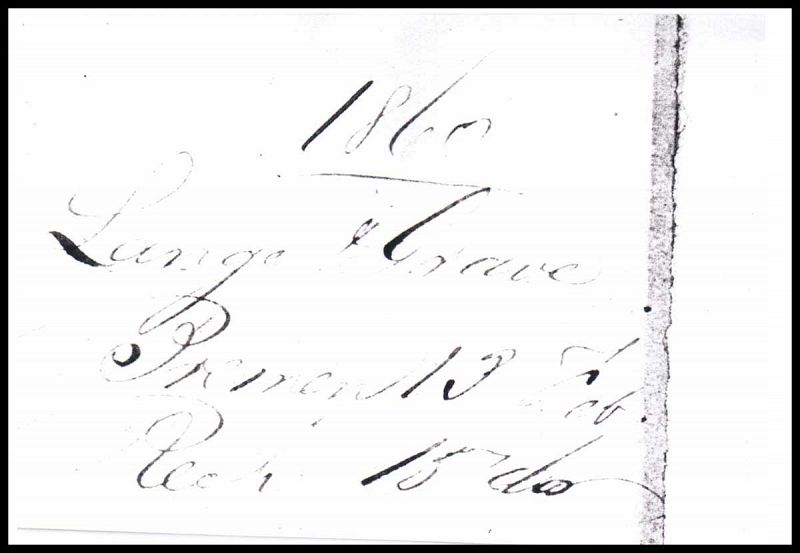 1860
Lange & Grave
Bremen 13 Feb.
Rec'd 15 do